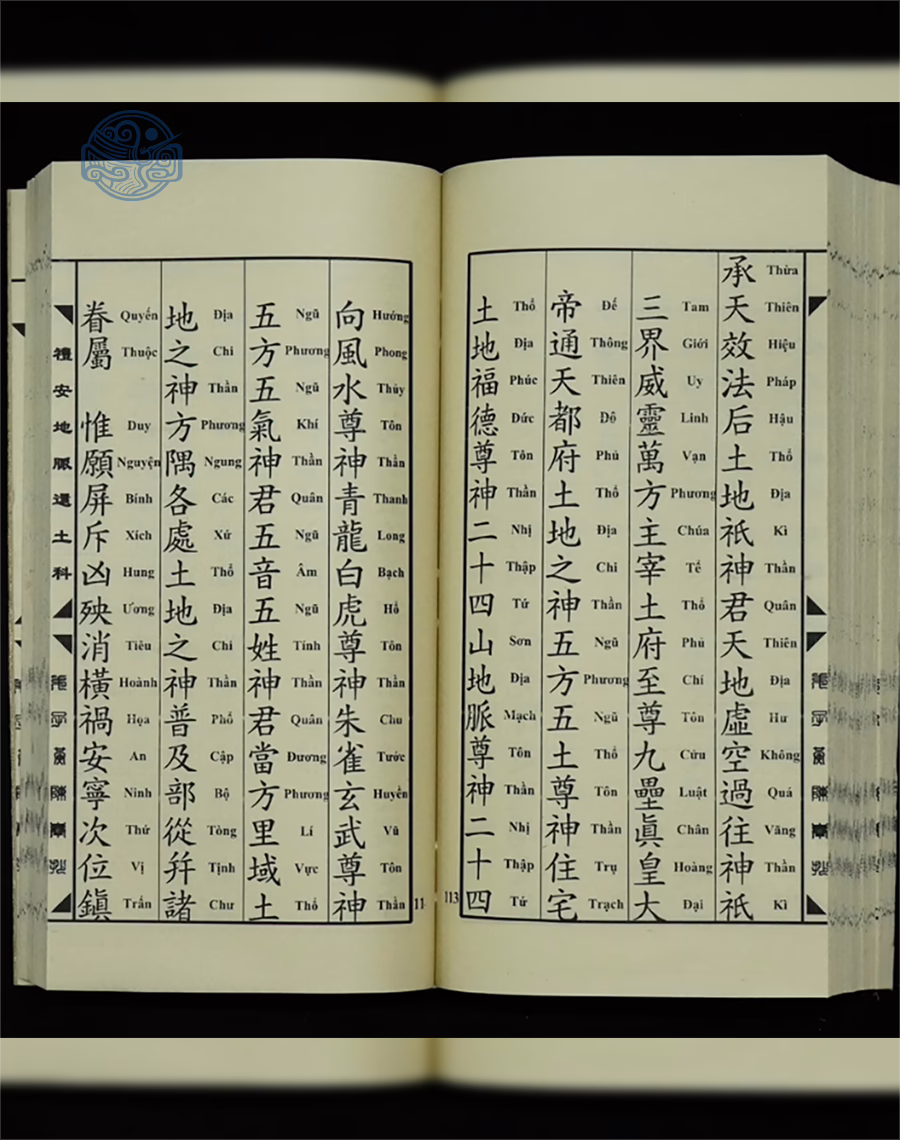 承天效法后土地祇神君天地虛空過往神祇
Thừa Thiên Hiệu Pháp Hậu Thổ Địa Kì Thần Quân Thiên Địa Hư Không Quá Vãng Thần Kì
三界威靈萬方主宰土府至尊九壘眞皇大
Tam Giới Uy Linh Vạn Phương Chúa Tể Thổ Phủ Chí Tôn Cửu Luật Chân Hoàng Đại
帝通天都府土地之神五方五土尊神住宅
Đế Thông Thiên Đô Phủ Thổ Địa Chi Thần Ngũ Phương Ngũ Thổ Tôn Thần Trụ Trạch
土地福德尊神二十四山地脈尊神二十四
Thổ Địa Phúc Đức Tôn Thần Nhị Thập Tứ Sơn Địa Mạch Tôn Thần Nhị Thập Tứ
113
向風水尊神青龍白虎尊神朱雀玄武尊神
Hướng Phong Thủy Tôn Thần Thanh Long Bạch Hổ Tôn Thần Chu Tước Huyền Vũ Tôn Thần
五方五氣神君五音五姓神君當方里域土
Ngũ Phương Ngũ Khí Thần Quân Ngũ Âm Ngũ Tính Thần Quân Dương Phương Lí Vực Thổ
地之神方隅各處土地之神普及部從幷諸
Địa Chi Thần Phương Ngung Các Xứ Thổ Địa Chi Thần Phổ Cập Bộ Tòng Tịnh Chư
眷屬 惟願屏斥凶殃消橫禍安寧次位鎮
Quyến Thuộc Duy Nguyện Bính Xích Hung Ương Tiêu Hoành Họa An Ninh Thứ Vị Trấn
禮安地脈還土科